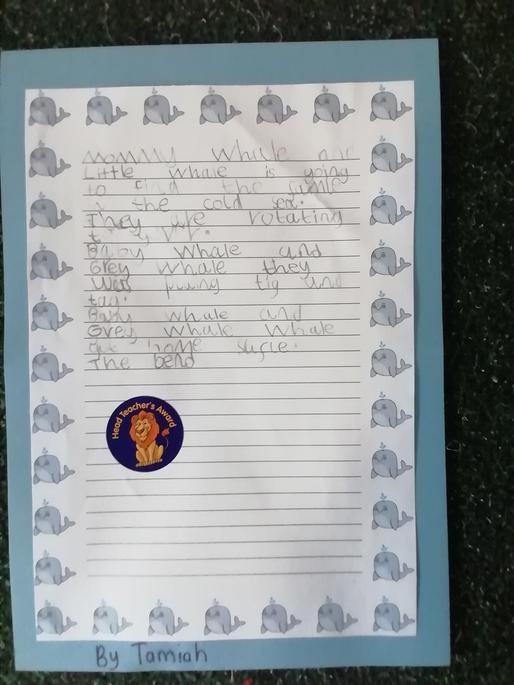 Mommy Whale and
Little Whale is going
to find the famle
in the cold sea.
They are rotating
Baby Whale and
Grey Whale they
Was tig and
tag.
Baby whale and
Grey Whale Whale
home
The bend
Head Teacher's Award
By Tamiah